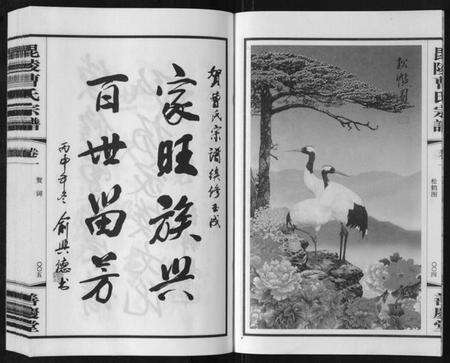 毘陵曹氏宗譜
卷一
松鶴圖
〇〇四
善慶堂
松鶴圖
賀曹氏宗譜續修告成
家旺族興
百世留芳
丙申年冬 俞興德书
毘陵曹氏宗譜
卷一
賀詞
〇〇五
善慶堂